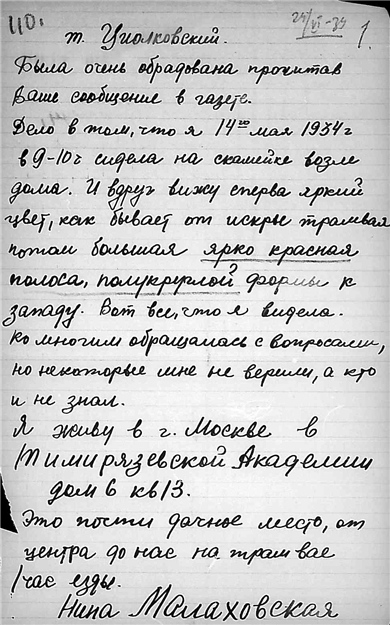 40.
24/VI-34
1.
т. Циолковский.
Была очень обрадована прочитав
Ваше сообщение в газете.
Дело в том, что я 14го мая 1934 г
в 9-10 ч сидела на скамейке возле
дома. И вдруг вижу сперва яркий
цвет, как бывает от искры трамвая
потом большая ярко красная
полоса, полукруглой формы к
западу. Вот все, что я видела.
Ко многим обращалась с вопросами,
но некоторые мне не верили, а кто
и не знал.
Я живу в г. Москве в
Тимирязевской Академии
дом 6 кв 13.
Это почти дачное место, от
центра до нас на трамвае
1 час езды.
Нина Малаховская